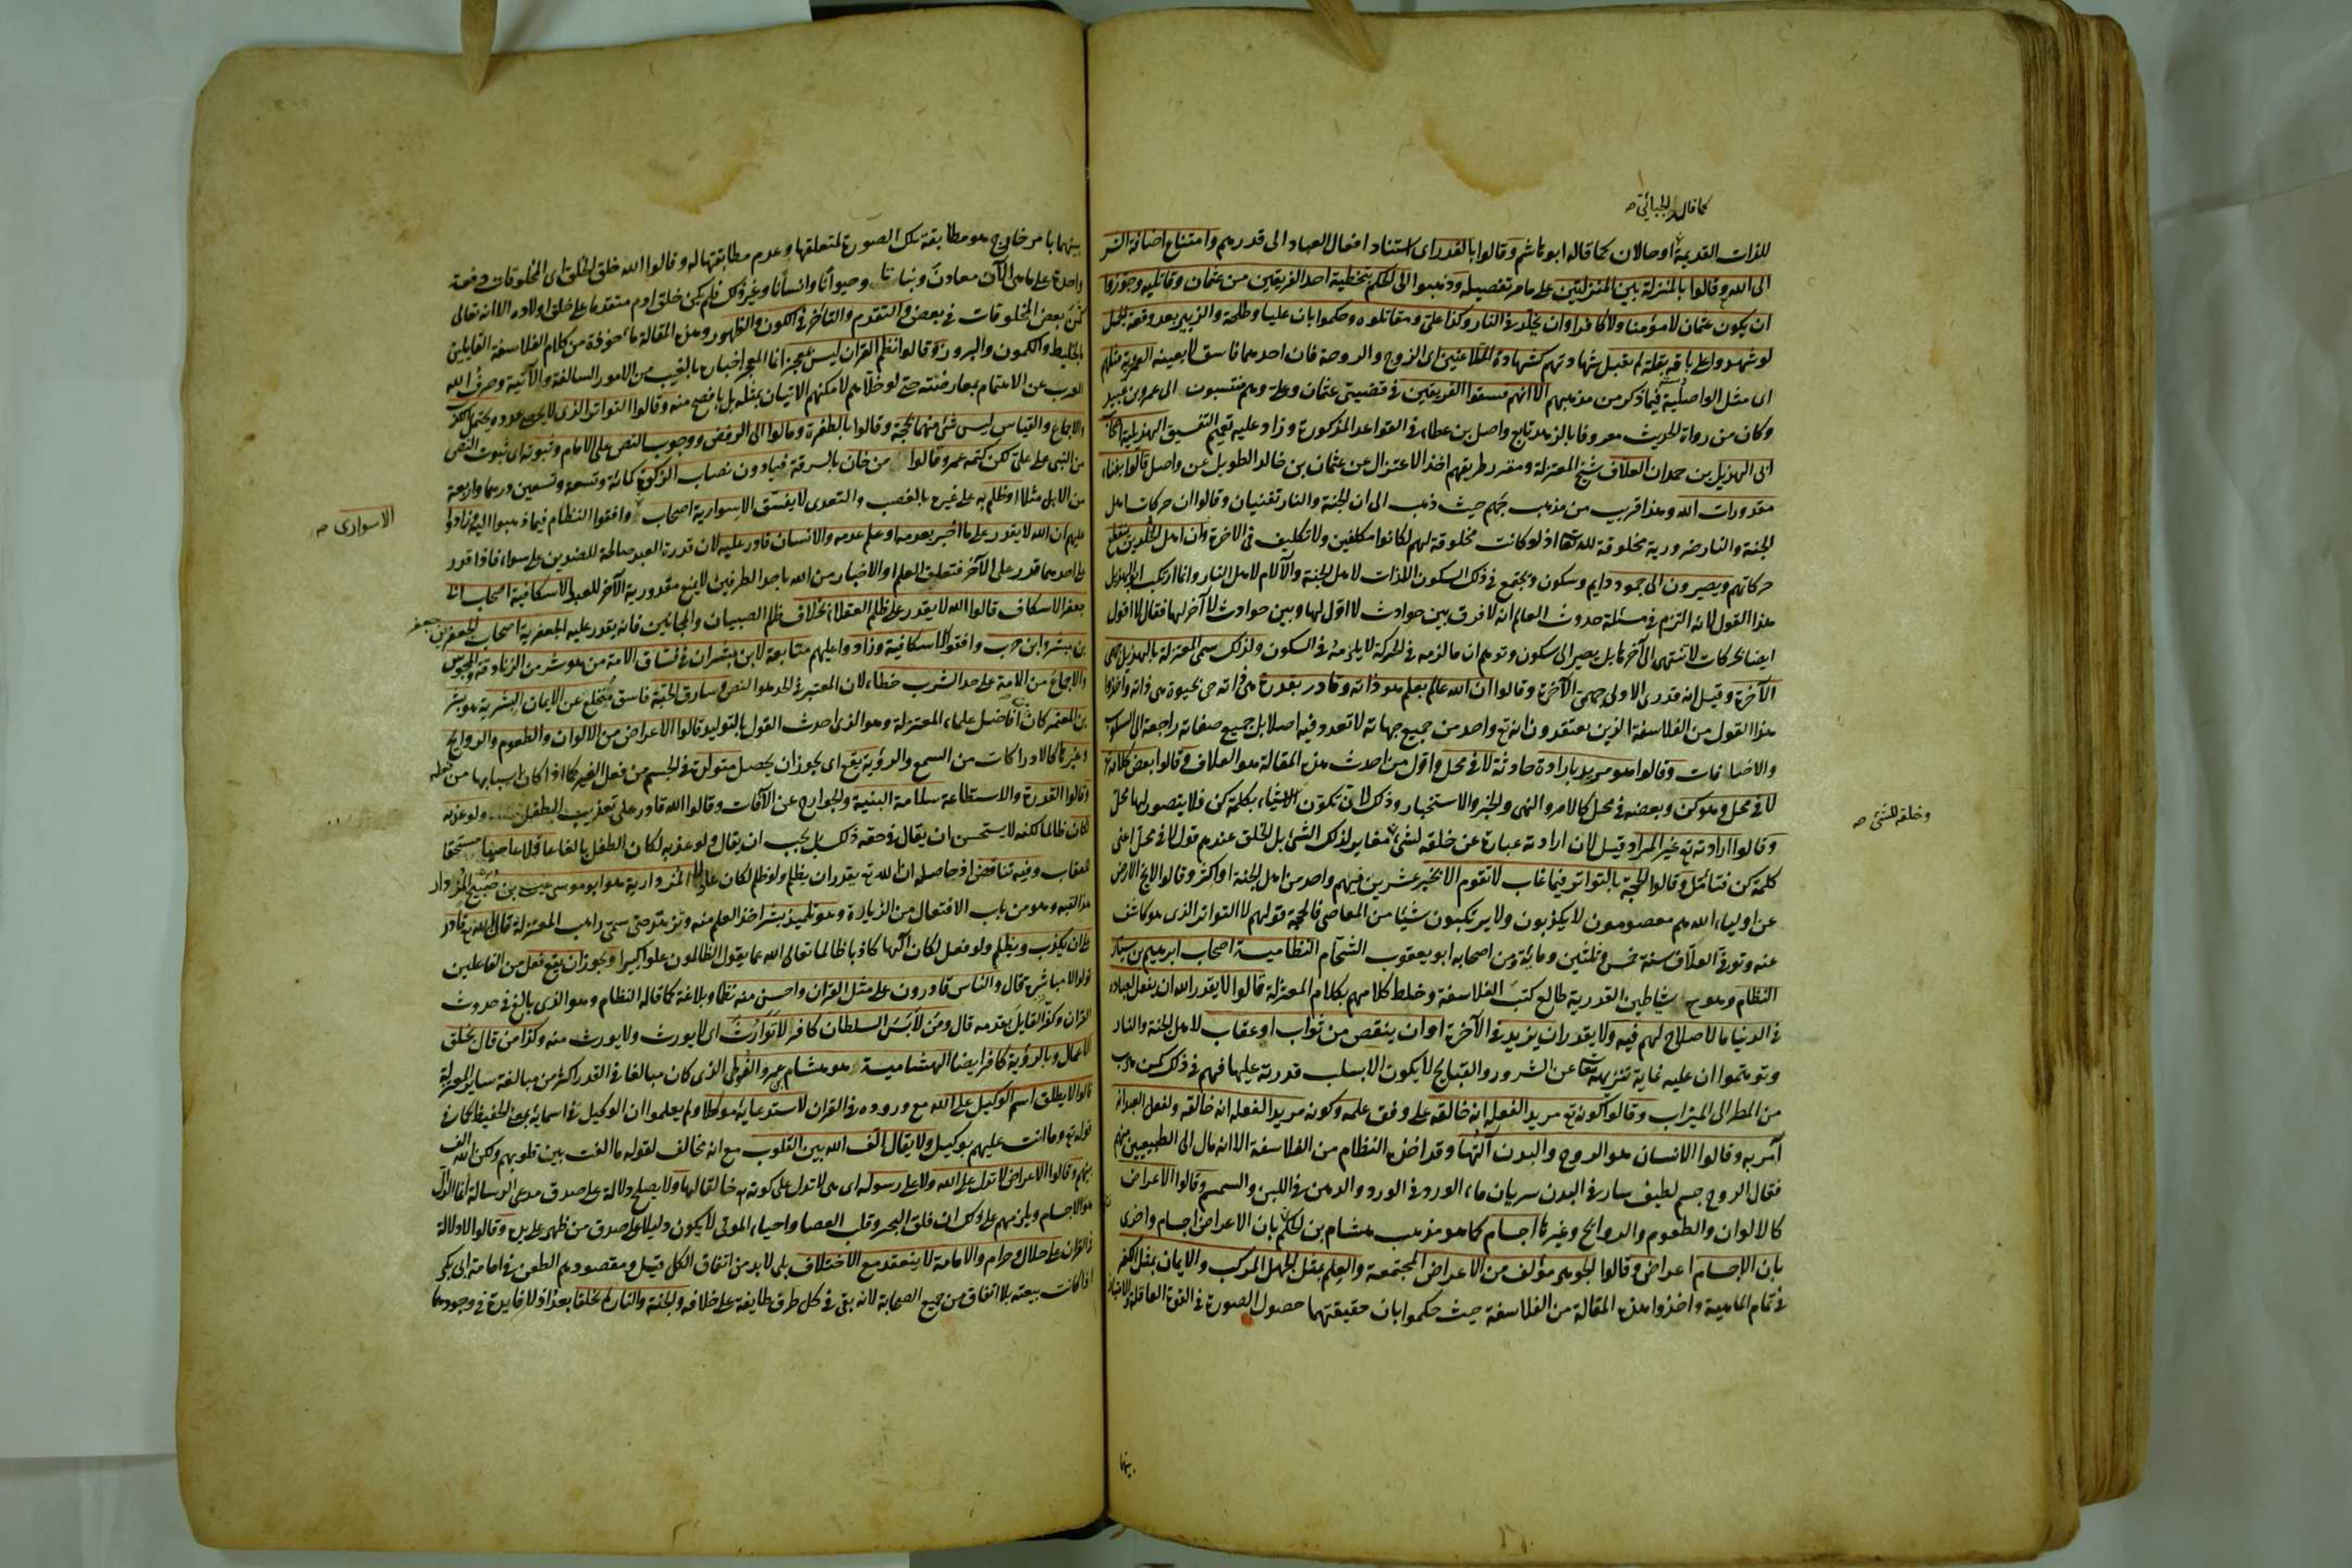 كما قال الجبائي صح
للذات القديمة او حالان كما قاله ابو هاشم وقالوا بالقدر اى استناد افعال العباد الى قدرهم وامتناع اضافة الشر
الى الله وقالوا بالمنزلة بين المنزلتين على ما مر تفصيله وذهبوا الى الحكم بتخطية احد الفريقين من عثمان وقاتليه وجوزوا
ان يكون عثمان لا مؤمنا ولا كافرا وان يخلد فى النار وكذا على ومقاتلوه وحكموا بان عليا وطلحة والزبير بعد وقعة الجمل
لو شهدوا على باقة بقلة لم تقبل شهادتهم كشهادة المتلاعنين اى الزوج والزوجة فان احدهما فاسق لا بعينه العمرية مثلهم
اى مثل الواصلية فيما ذكر من مذهبهم الا انهم فسقوا الفريقين فى قضيتى عثمان وعلى وهم منتسبون الى عمرو بن عبيد
وكان من رواة الحديث معروفا بالزهد تابع واصل بن عطاء فى القواعد المذكورة وزاد عليه تعميم التفسيق الهذيلية اصحاب
ابى الهذيل بن حمدان العلاف شيخ المعتزلة ومقرر طريقهم اخذ الاعتزال عن عثمان بن خالد الطويل عن واصل قالوا بفناء
مقدورات الله وهذا قريب من مذهب جهم حيث ذهب الى ان الجنة والنار تفنيان وقالوا ان حركات اهل
الجنة والنار ضرورية مخلوقة لله تعا اذ لو كانت مخلوقة لهم لكانوا مكلفين ولا تكليف فى الاخرة وان اهل الخلدين ينقطع
حركاتهم ويصيرون الى جمود دايم وسكون ويجتمع فى ذلك السكون اللذات لاهل الجنة والآلام لاهل النار وانما ارتكب ابو الهذيل
هذا القول لانه التزم فى مسئلة حدوث العالم انه لا فرق بين حوادث لا اول لها وبين حوادث لا آخر لها فقال لا اقول
ايضا بحركات لا تنتهى الى آخرها بل يصير الى سكون وتوهم ان ما لزمه فى الحركة لا يلزمه فى السكون ولذلك سمى المعتزلة بالهذيل جهمى
الآخرة وقيل انه قدرى الاولى جهمى الآخرة وقالوا ان الله عالم بعلم هو ذاته وقادر بقدرة هى ذاته حى بحيوة هى ذاته واخذوا
هذا القول من الفلاسفة الذين يعتقدون انه تع واحد من جميع جهاته لا تعدد فيه اصلا بل جميع صفاته راجعة الى السلوب
والاضافات وقالوا هو مريد بارادة حادثة لا فى محل واول من احدث هذه المقالة هو العلاف وقالوا بعض كلامه تع
لا فى محل وهو كن وبعضه فى محل كالامر والنهى والخبر والاستخبار وذلك لان تكون الاشياء بكلمة كن فلا يتصور لها محل
وقالوا ارادته تع غير المراد قيل لان ارادته عبارة عن خلقه لشئ مغاير لذلك الشئ بل الخلق عندهم قول لا فى محل اعنى
وخلقه للشئ صح
كلمة كن فتامل وقالوا الحجة بالتواتر فيما غاب لا تقوم الا بخبر عشرين فيهم واحد من اهل الجنة او اكثر وقالوا لا يخلو الارض
عن اولياء الله هم معصومون لا يكذبون ولا يرتكبون شيئا من المعاصى فالحجة قولهم لا التواتر الذى هو كاشف
عنه وتوفى العلاف سنة خمس وثلثين ومائة ومن اصحابه ابو يعقوب الشحام النظامية اصحاب ابرهيم بن سيار
النظام وهو من شياطين القدرية طالع كتب الفلاسفة وخلط كلامهم بكلام المعتزلة قالوا لا يقدر الله ان يفعل بعباده
فى الدنيا ما لا صلاح لهم فيه ولا يقدر ان يزيد فى الآخرة او ان ينقص من ثواب او عقاب لاهل الجنة والنار
وتوهموا ان عليه غاية تنزيهه تعا عن الشرور والقبايح لا يكون الا بسلب قدرته عليها فهم فى ذلك كمن هرب
من المطر الى الميزاب وقالوا كونه تع مريدا لفعله انه خالقه على وفق علمه وكونه مريدا لفعل العبد انه
آمر به وقالوا الانسان هو الروح والبدن آلتها وقد اخذه النظام من الفلاسفة الا انه مال الى الطبيعيين منهم
فقال الروح جسم لطيف سار فى البدن سريان ماء الورد فى الورد والدهن فى اللبن والسمسم وقالوا الاعراض
كالالوان والطعوم والروايح وغيرها اجسام كما هو مذهب هشام بن الحكم بان الاعراض اجسام واخرى
بان الاجسام اعراض وقالوا الجوهر مؤلف من الاعراض المجتمعة والعلم مثل الجهل المركب والايمان مثل الكفر
فى تمام الماهية واخذوا هذه المقالة من الفلاسفة حيث حكموا بان حقيقتهما حصول الصورة فى القوة العاقلة
بينهما
بينهما بامر خارج هو مطابقة تلك الصورة لمتعلقها وعدم مطابقتها له وقالوا الله خلق الخلق اى المخلوقات دفعة
واحدة على ما هى الآن معادن ونباتا وحيوانا وانسانا وغير ذلك فلم يكن خلق آدم متقدما على خلق اولاده الا انه تعالى
كمن بعض المخلوقات فى بعض والتقدم والتاخر فى الكمون والظهور وهذه المقالة ماخوذة من كلام الفلاسفة القايلين
بالخليط والكمون والبروز وقالوا نظم القران ليس بمعجز انما المعجز اخباره بالغيب من الامور السالفة والآتية وصرف الله
العرب عن الاهتمام بمعارضته حتى لو خلاهم لامكنهم الاتيان بمثله بل بافصح منه وقالوا التواتر الذى لا يحصى عدده يحتمل الكذب
والاجماع والقياس ليس شئ منهما بحجة وقالوا بالطفرة ومالوا الى الرفض ووجوب النص على الامام وثبوته اى ثبوت النص
من النبى على على لكن كتمه عمر وقالوا من خان بالسرقة فيما دون نصاب الزكوة كمائة وتسعة وتسعين درهما واربعة
من الابل مثلا او ظلم به على غيره بالغصب والتعدى لا يفسق الاسوارية اصحاب وافقوا النظام فيما ذهبوا اليه وزادوا
الاسوارى صح
عليهم ان الله لا يقدر على ما اخبر بعدمه او علم عدمه والانسان قادر عليه لان قدرة العبد صالحة للضدين على سواء فاذا قدر
على احدهما قدر على الآخر فتعلق العلم او الاخبار من الله باحد الطرفين لا يمنع مقدورية الآخر للعبد الاسكافية اصحاب ابى
جعفر الاسكاف قالوا الله لا يقدر على ظلم العقلاء بخلاف ظلم الصبيان والمجانين فانه يقدر عليه الجعفرية اصحاب الجعفرين جعفر
بن مبشر وابن حرب وافقوا الاسكافية وزادوا عليهم متابعة لابن مبشر ان فى فساق الامة من هو شر من الزنادقة والمجوس
والاجماع من الامة على حد الشرب خطاء لان المعتبر فى الحد هو النص وسارق الحبة فاسق منخلع عن الايمان البشرية هو بشر
بن المعتمر كان من افاضل علماء المعتزلة وهو الذى احدث القول بالتوليد قالوا الاعراض من الالوان والطعوم والروايح
وغيرها كالادراكات من السمع والرؤية يقع اى يجوز ان يحصل متولدة فى الجسم من فعل الغير كما اذا كان اسبابها من فعله
وقالوا القدرة والاستطاعة سلامة البنية والجوارح عن الآفات وقالوا الله قادر على تعذيب الطفل ولو عذبه
لكان ظالما لكنه لا يستحسن ان يقال فى حقه ذلك بل يجب ان يقال ولو عذبه لكان الطفل بالغا عاقلا عاصيا مستحقا
للعقاب وفيه تناقض اذ حاصله ان الله تع يقدر ان يظلم ولو ظلم لكان عادلا المزدارية هو ابو موسى عيسى بن صبيح المزدار
هذا لقبه وهو من باب الافتعال من الزيارة وهو تلميذ بشر اخذ العلم منه وتزهد حتى سمى راهب المعتزلة قال الله تع قادر
على ان يكذب ويظلم ولو فعل لكان آلها كاذبا ظالما تعالى الله عما يقول الظالمون علوا كبيرا ويجوز ان يقع فعل من الفاعلين
تولدا لا مباشرة قال والناس قادرون على مثل القران واحسن منه نظما وبلاغة كما قاله النظام وهو الذى بالغ فى حدوث
القران وكفر القايل بقدمه قال ومن لابس السلطان كافر لا توارث اى لا يورث ولا يورث منه وكذا من قال بخلق
الاعمال وبالرؤية كافر ايضا الهشامية هو هشام بن عمرو الفوطى الذى كان مبالغا فى القدر اكثر من مبالغة ساير المعتزلة
قالوا لا يطلق اسم الوكيل على الله مع وروده فى القران لاستدعائه موكلا ولم يعلموا ان الوكيل فى اسمائه بمعنى الحفيظ كما فى
قوله تع وما انت عليهم بوكيل ولا يقال الف الله بين القلوب مع انه مخالف لقوله ما الفت بين قلوبهم ولكن الله الف
بينهم وقالوا الاعراض لا تدل على الله ولا على رسوله اى هى لا تدل على كونه تع خالقا لها ولا يصلح دلالة على صدق مدعى الرسالة انما الدال
هو الاجسام ويلزمهم على ذلك ان فلق البحر وقلب العصا واحياء الموتى لا يكون دليلا على صدق من ظهر على يده وقالوا لا دلالة
فى القران على حلال وحرام والامامة لا ينعقد مع الاختلاف بلى لابد من اتفاق الكل قيل ومقصودهم الطعن فى امامة ابى بكر
اذ كانت بيعته بلا اتفاق من جميع الصحابة لانه بقى فى كل طرف طايفة على خلافه والجنة والنار لم تخلقا بعد اذ لا فايدة فى وجودهما